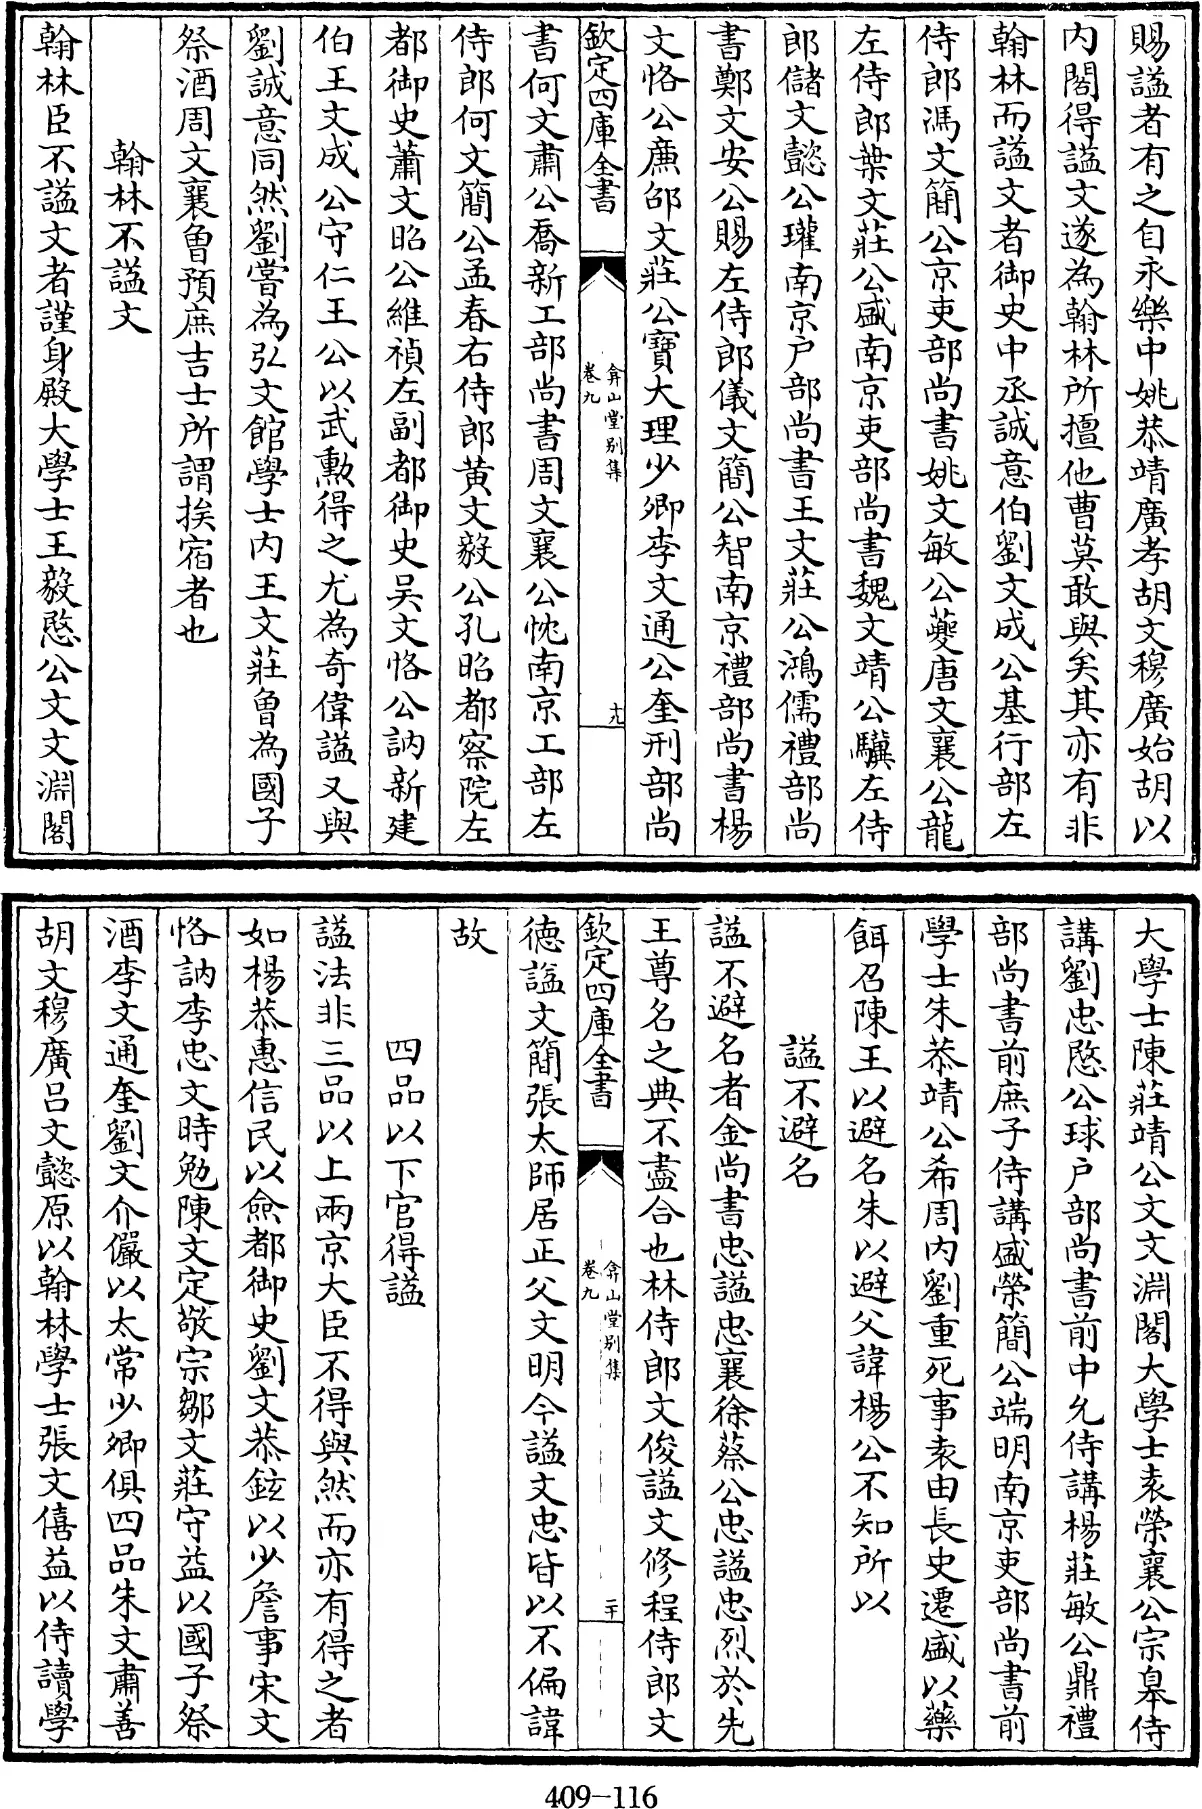 賜諡者有之自永樂中姚恭靖廣孝胡文穆廣始胡以
内閣得諡文遂為翰林所擅他曹莫敢與矣其亦有非
翰林而諡文者御史中丞誠意伯劉文成公基行部左
侍郎馮文簡公京吏部尚書姚文敏公夔唐文襄公龍
左侍郎葉文莊公盛南京吏部尚書魏文靖公驥左侍
郎儲文懿公瓘南京户部尚書王文莊公鴻儒禮部尚
書鄭文安公賜左侍郎儀文簡公智南京禮部尚書楊
文恪公廉邵文莊公寶大理少卿李文通公奎刑部尚
欽定四庫全書
弇山堂别集
卷九
十九
書何文肅公喬新工部尚書周文襄公忱南京工部左
侍郎何文簡公孟春右侍郎黄文毅公孔昭都察院左
都御史蕭文昭公維禎左副都御史吴文恪公訥新建
伯王文成公守仁王公以武勲得之尤為奇偉諡又與
劉誠意同然劉嘗為弘文館學士内王文莊曾為國子
祭酒周文襄曾預庶吉士所謂挨宿者也
翰林不諡文
翰林臣不諡文者謹身殿大學士王毅愍公文文淵閣
大學士陳莊靖公文文淵閣大學士袁榮襄公宗臯侍
講劉忠愍公球户部尚書前中允侍講楊莊敏公鼎禮
部尚書前庶子侍講盛榮簡公端明南京吏部尚書前
學士朱恭靖公希周内劉重死事袁由長史遷盛以藥
餌召陳王以避名朱以避父諱楊公不知所以
諡不避名
諡不避名者金尚書忠諡忠襄徐蔡公忠諡忠烈於先
王尊名之典不盡合也林侍郎文俊諡文修程侍郎文
欽定四庫全書
弇山堂别集
卷九
二十
德諡文簡張太師居正父文明今諡文忠皆以不偏諱
故
四品以下官得諡
諡法非三品以上兩京大臣不得與然而亦有得之者
如楊恭惠信民以僉都御史劉文恭鉉以少詹事宋文
恪訥李忠文時勉陳文定敬宗鄒文莊守益以國子祭
酒李文通奎劉文介儼以太常少卿俱四品朱文肅善
胡文穆廣吕文懿原以翰林學士張文僖益以侍讀學
409-116